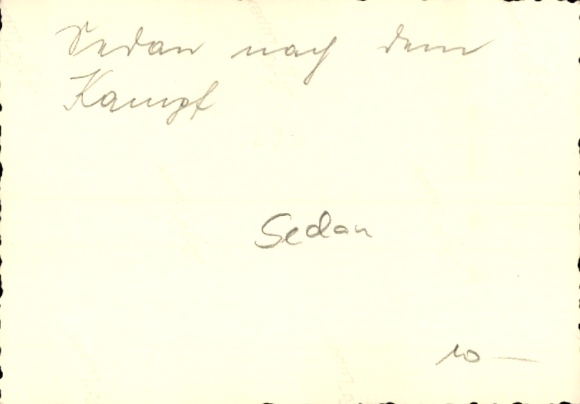 Sedan nach dem
Kampf
Sedan
10 —